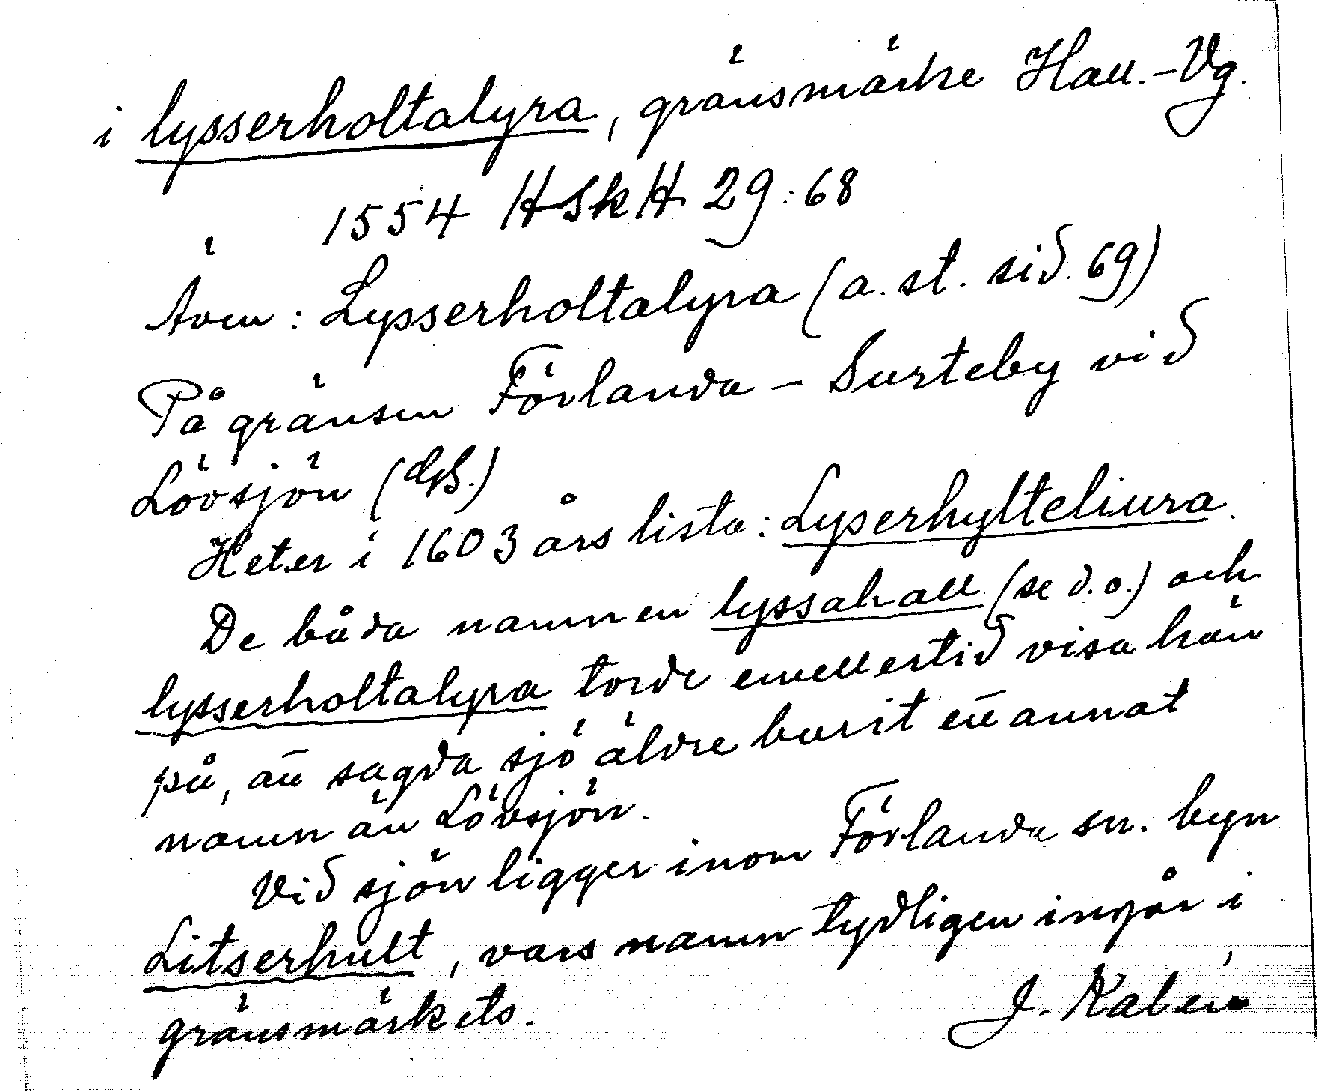 i lysserholtalyra, gränsmärke Hall.-Vg.
1554 HSkH 29:68
Även: Lysserholtalyra (a. st. sid. 69)
På gränsen Förlanda - Surteby vid
Lövsjön (GB.)
Heter i 1603 års lista: Lyserhylteliura.
De båda namnen lyssahall (se d. o.) och
lysserholtalyra torde emellertid visa hän
på, att sagda sjö äldre burit ett annat
namn än Lövsjön.
Vid sjön ligger inom Förlanda sn. byn
Litserhult, vars namn tydligen ingår i
gränsmärkets.
J. Kalén